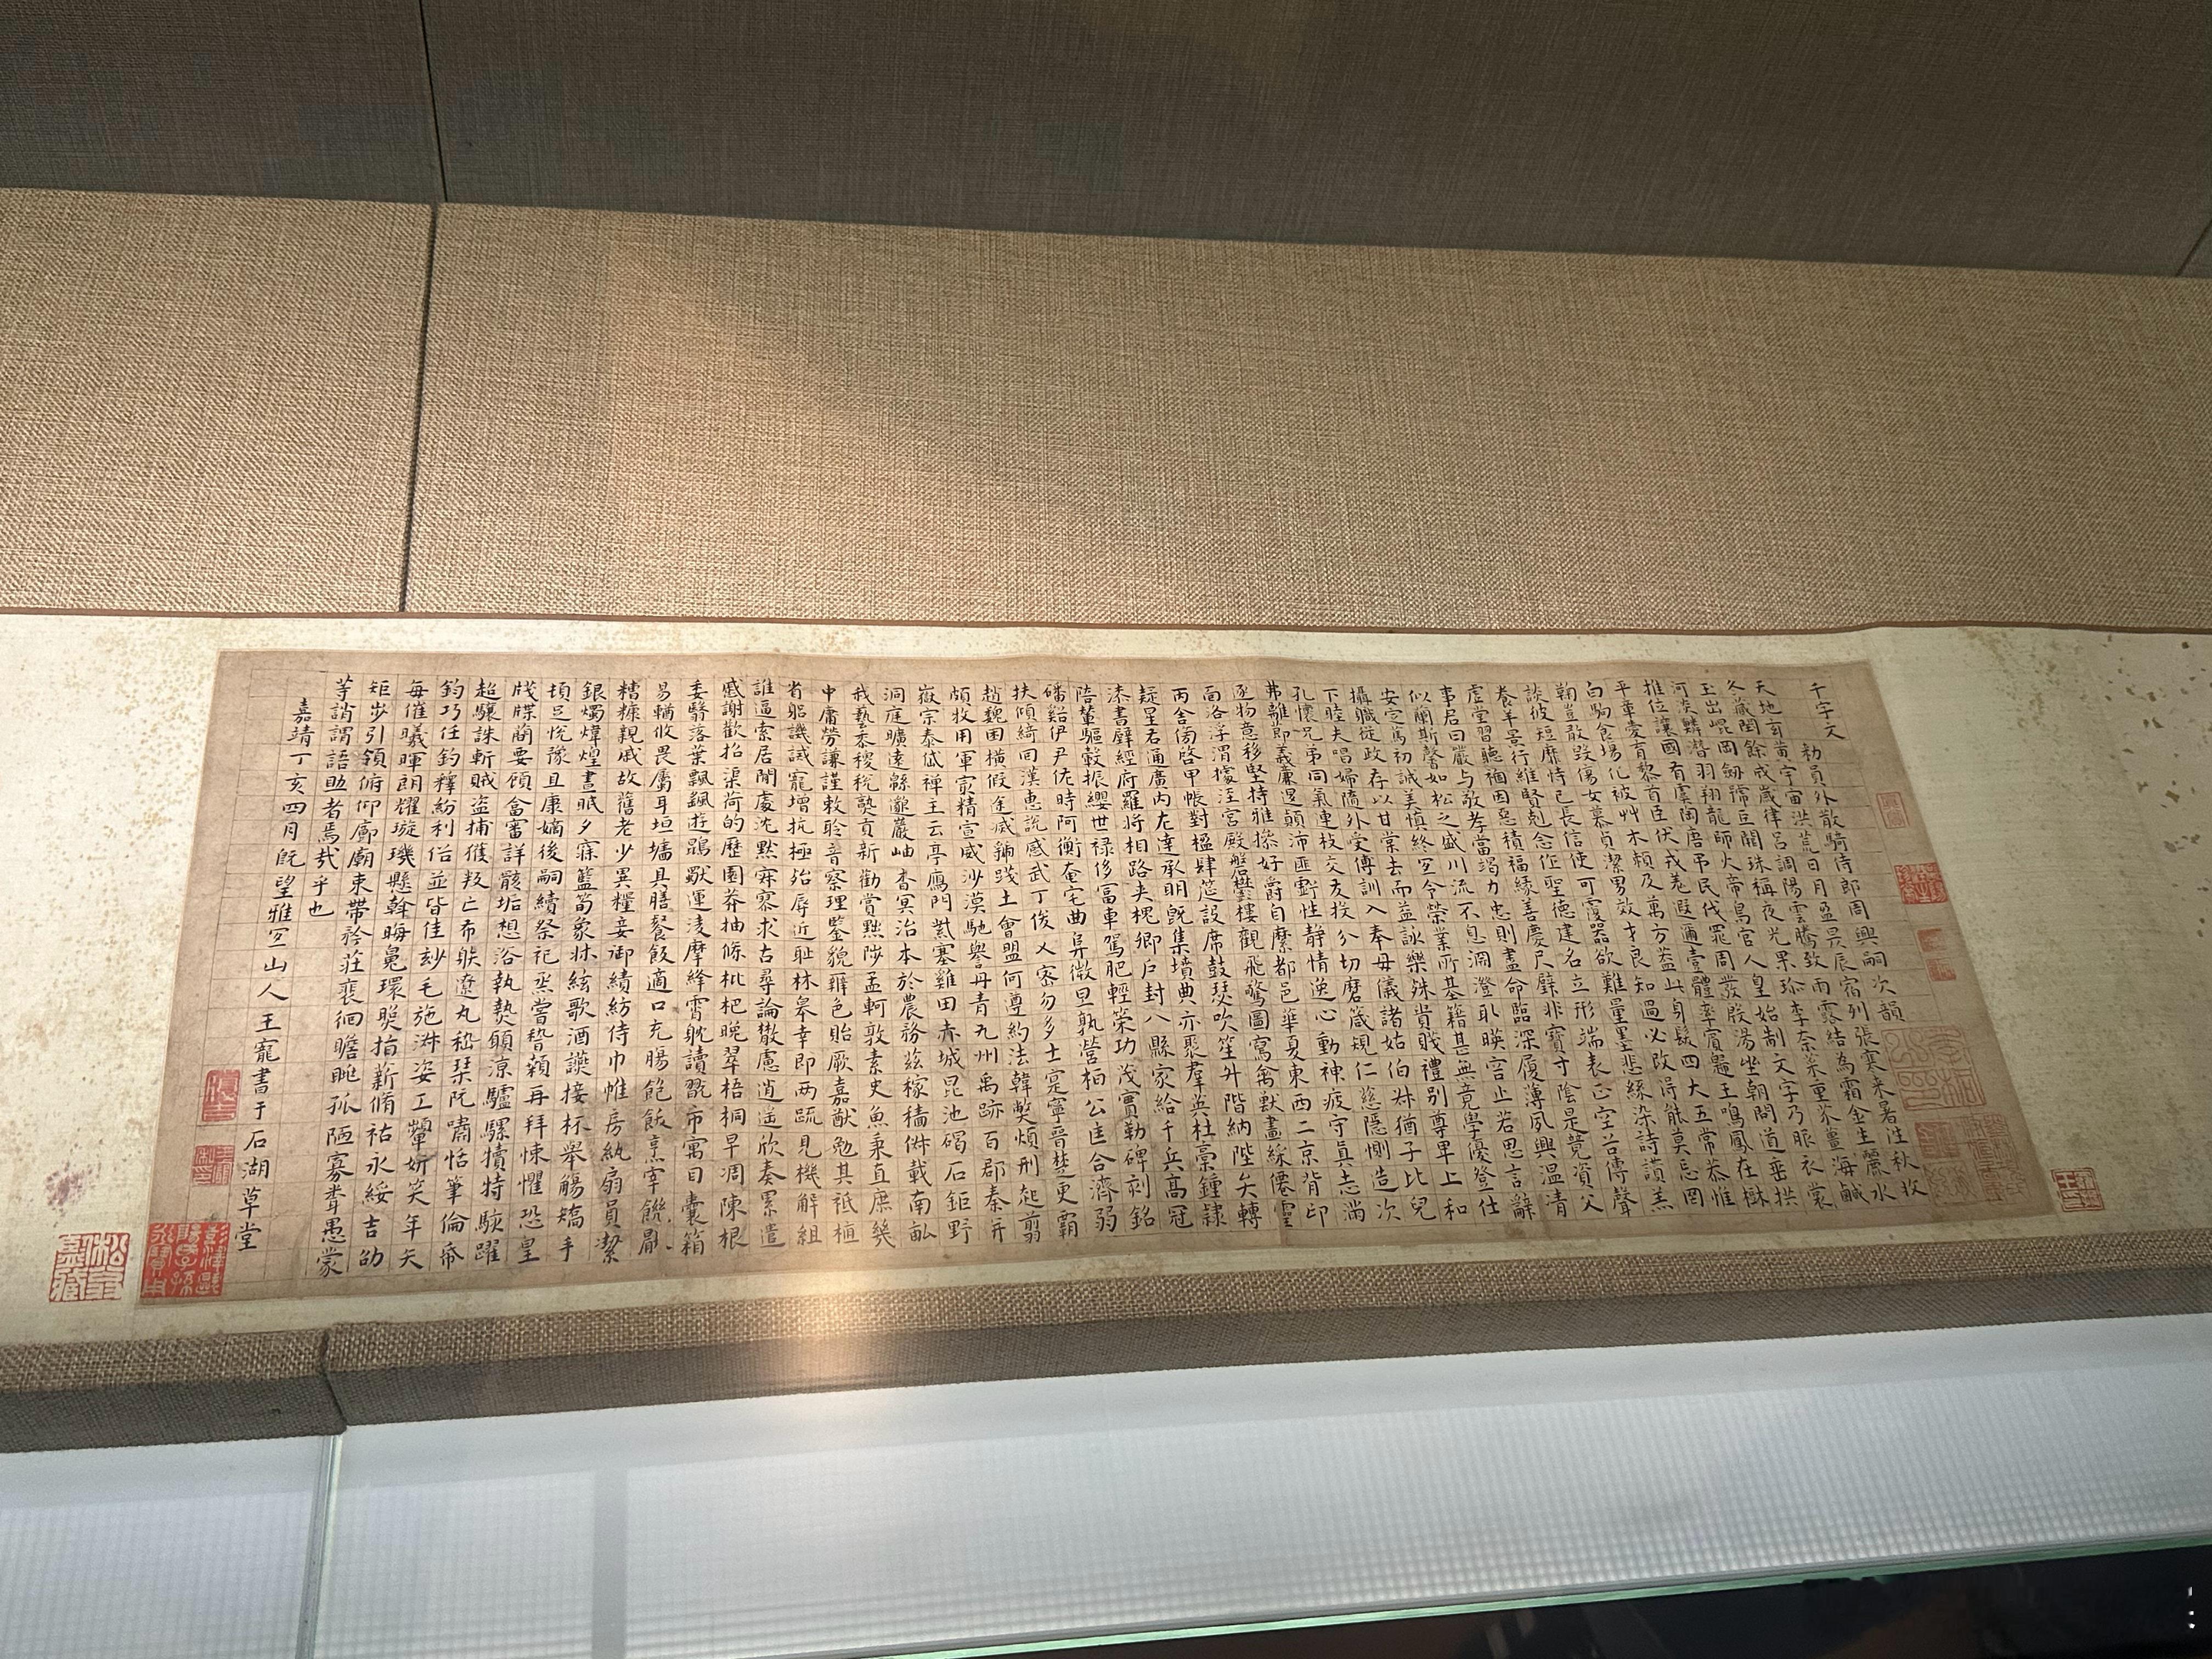 千字文 勑員外散騎侍郎周興嗣次韻
天地玄黃宇宙洪荒日月盈昃辰宿列張寒来暑往秋收
冬蔵閏餘成歲律呂調陽雲騰致雨露結為霜金生麗水
玉出崐岡劔號巨闕珠稱夜光果珎李柰菜重芥薑海鹹
河淡鱗潛羽翔龍師火帝鳥官人皇始制文字乃服衣裳
推位讓國有虞陶唐弔民伐罪周發殷湯坐朝問道垂拱
平章愛育黎首臣伏戎羌遐邇壹體率賓歸王鳴鳳在樹
白駒食場化被艸木頼及萬方葢此身髮四大五常恭惟
鞠豈敢毀傷女慕貞潔男效才良知過必改得能莫忘罔
談彼短靡恃己長信使可覆器欲難量墨悲絲染詩讚羔
養羊景行維賢剋念作聖德建名立形端表正空谷傳聲
虛堂習聽禍因惡積福緣善慶尺璧非寶寸陰是競資父
事君曰嚴与敬孝當竭力忠則盡命臨深履薄夙興溫清
似蘭斯馨如松之盛川流不息淵澄取暎容止若思言辭
安定篤初誠美慎終宜令榮業所基籍甚無竟學優登仕
攝職從政存以甘棠去而益詠樂殊貴賤禮別尊卑上和
下睦夫唱婦隨外受傅訓入奉母儀諸姑伯叔猶子比兒
孔懷兄弟同氣連枝交友投分切磨箴規仁慈隱惻造次
弗離節義廉退顛沛匪虧性静情逸心動神疲守真志滿
逐物意移堅持雅操好爵自縻都邑華夏東西二京背邙
面洛浮渭據涇宮殿盤鬱樓觀飛驚圖寫禽獸畫綵僊靈
丙舍傍啓甲帳對楹肆筵設席鼓瑟吹笙升階納陛弁轉
疑星右通廣內左達承明既集墳典亦聚羣英杜稾鍾隸
漆書壁經府羅將相路夾槐卿户封八縣家給千兵高冠
陪輦驅轂振纓世禄侈富車駕肥輕策功茂實勒碑刻銘
磻谿伊尹佐時阿衡奄宅曲阜微旦孰營桓公匡合濟弱
扶傾綺回漢惠說感武丁俊乂密勿多士寔寧晉楚更霸
趙魏困橫假途滅虢踐土會盟何遵約法韓弊煩刑起翦
頗牧用軍最精宣威沙漠馳譽丹青九州禹跡百郡秦并
嶽宗泰岱禪主云亭鴈門紫塞雞田赤城昆池碣石鉅野
洞庭曠遠緜邈巖岫杳冥治本於農務茲稼穡俶載南畝
我藝黍稷稅熟貢新勸賞黜陟孟軻敦素史魚秉直庶幾
中庸勞謙謹敕聆音察理鑒貌辯色貽厥嘉猷勉其祗植
省躬譏誡寵增抗極殆辱近恥林皋幸即两疏見機解組
誰逼索居閒處沈默寂寥求古尋論散慮逍遙欣奏累遣
慼謝歡招渠荷的歷園莽抽條枇杷晚翠梧桐早凋陳根
委翳落葉飄颻遊鵾獨運凌摩絳霄躭讀翫市寓目囊箱
易輶攸畏屬耳垣墻具膳餐飯適口充腸飽飫烹宰饑厭
糟糠親戚故舊老少異糧妾御績紡侍巾帷房紈扇員潔
銀燭煒煌晝眠夕寐籃筍象牀絃歌酒讌接杯舉觴矯手
頓足悅豫且康嫡後嗣續祭祀烝嘗稽顙再拜悚懼恐皇
牋牒簡要顧答審詳骸垢想浴執熱願涼驢騾犢特駭躍
超驤誅斬賊盜捕獲叛亡布射遼丸嵇琹阮嘯恬筆倫帋
鈞巧任釣釋紛利俗並皆佳妙毛施淑姿工顰妍笑年矢
每催曦暉朗耀璇璣懸斡晦魄環照指薪脩祜永綏吉劭
矩步引領俯仰廊廟束帶矜莊裵徊瞻眺孤陋寡聞愚蒙
等誚謂語助者焉哉乎也
嘉靖丁亥四月既望雅宜山人王寵書于石湖草堂